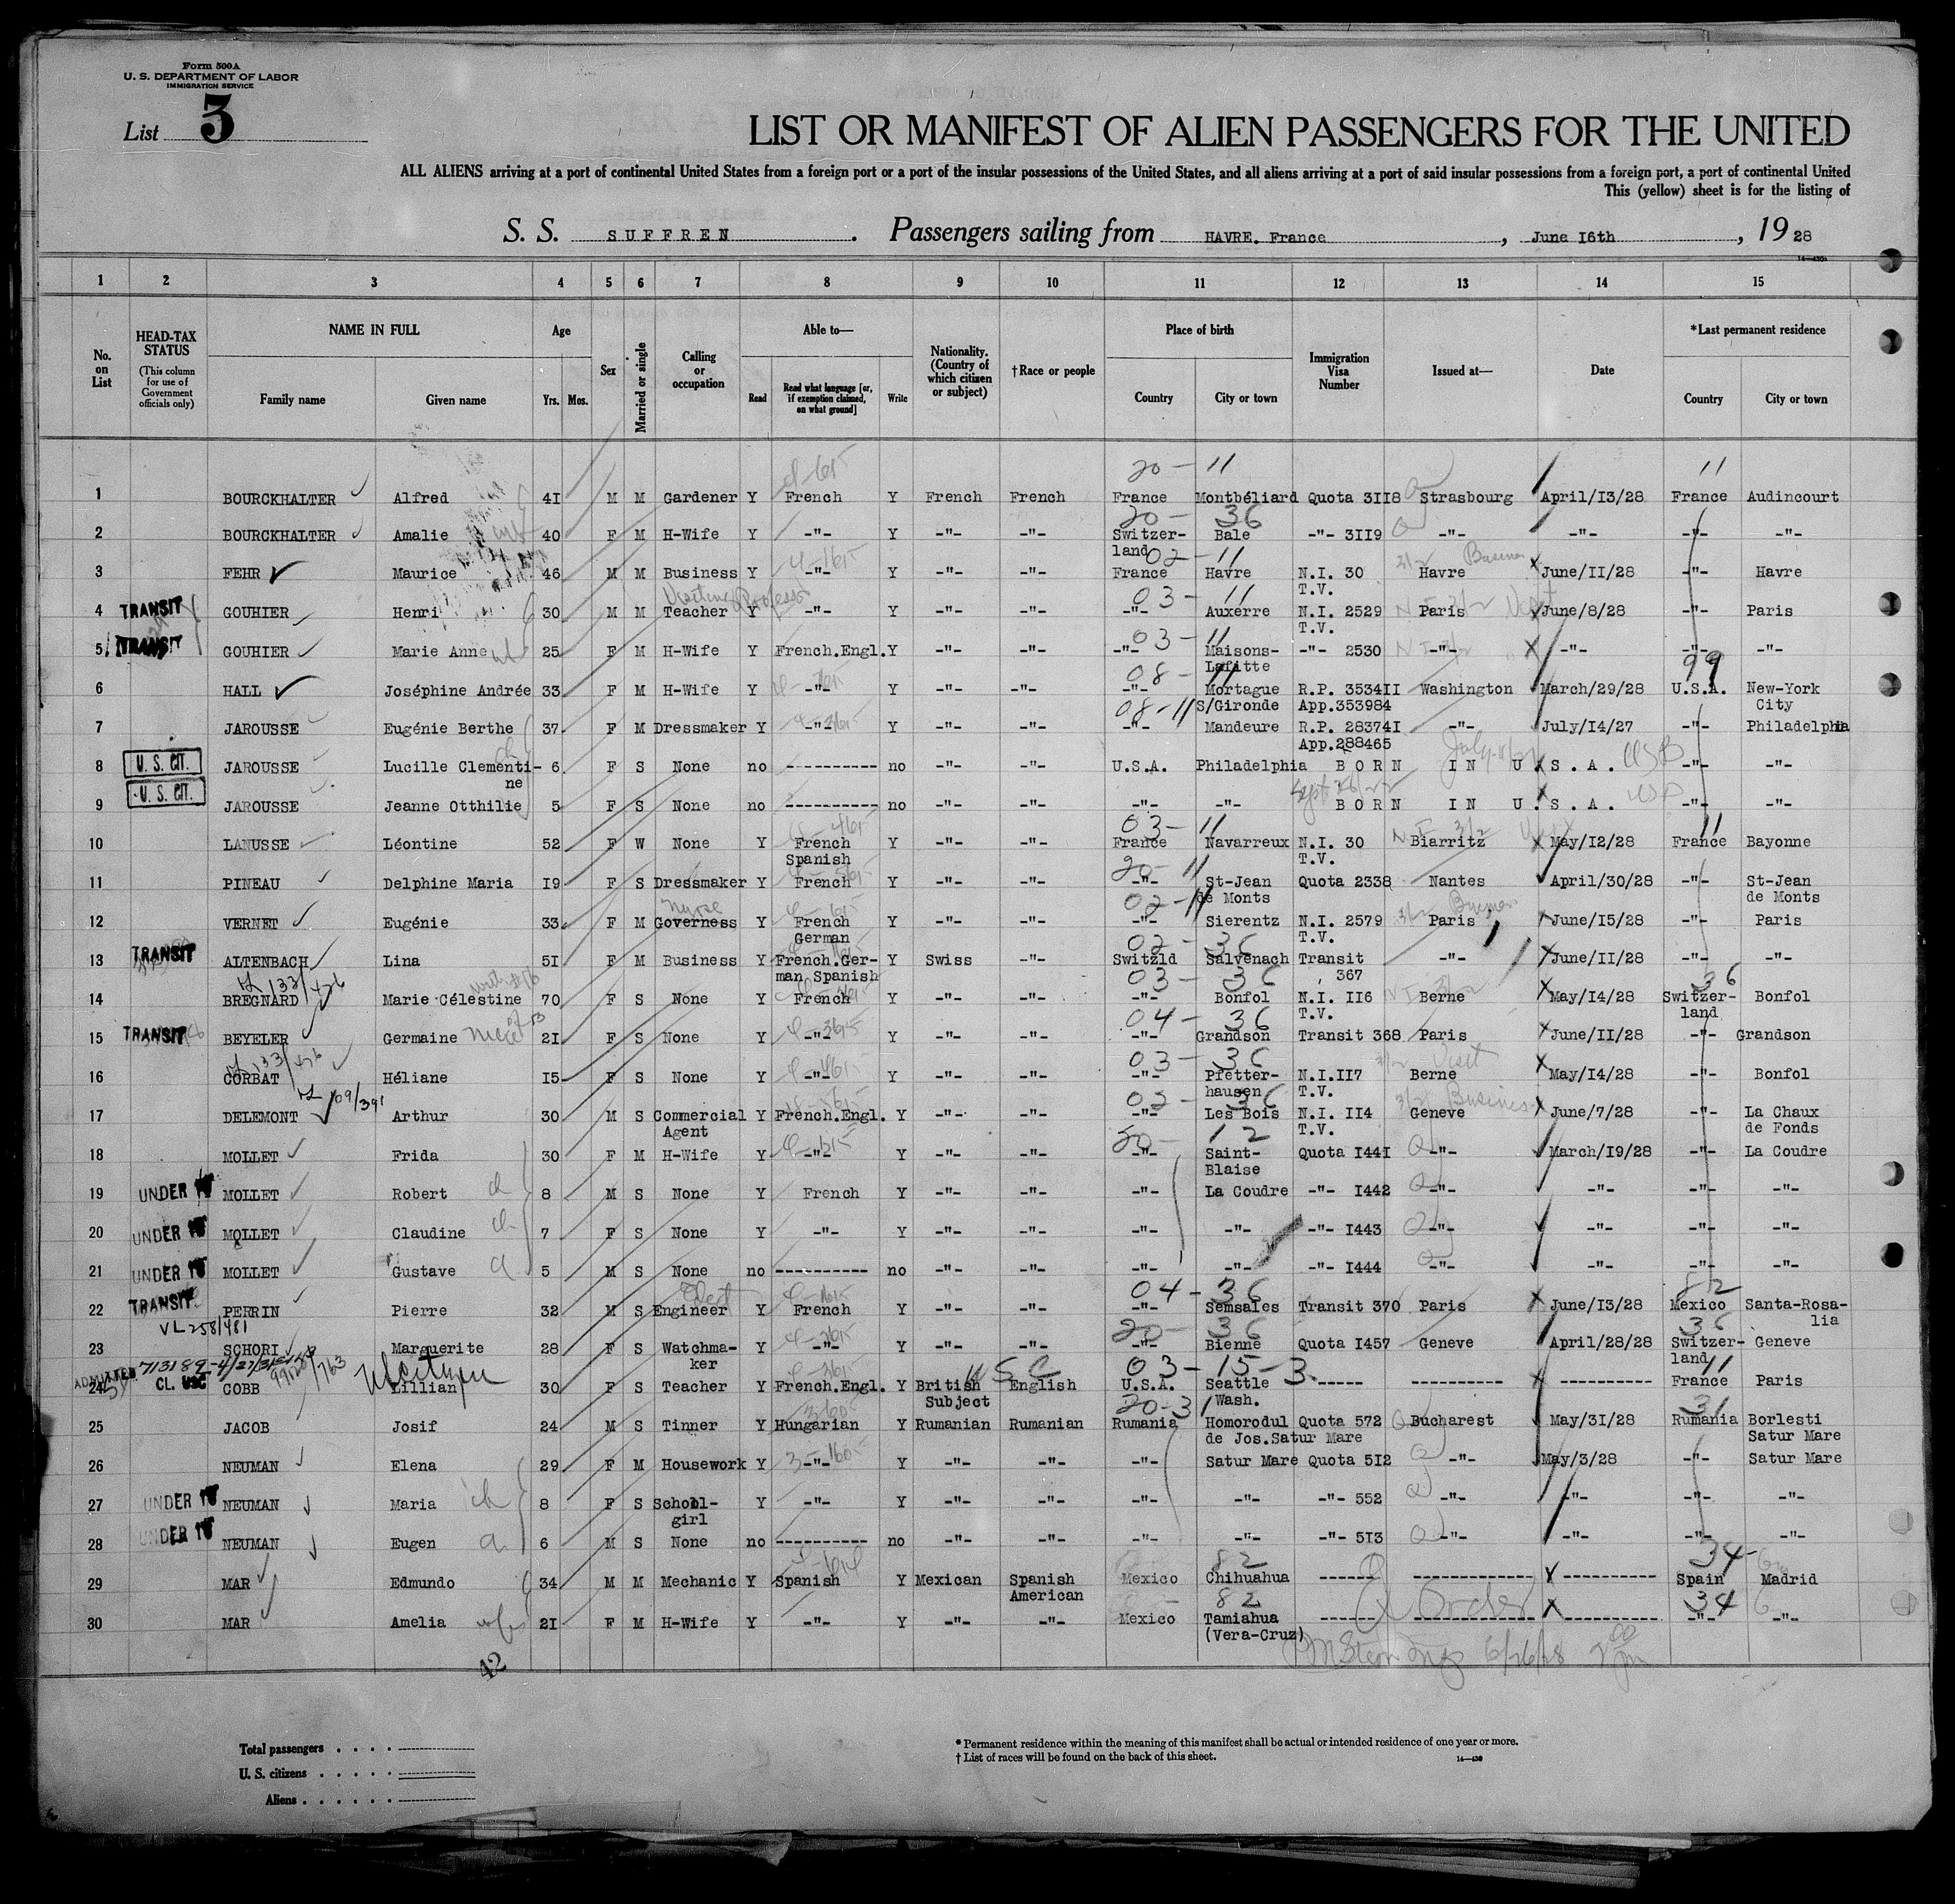 Form 500A
U. S. DEPARTMENT OF LABOR
IMMIGRATION SERVICE
List 3
LIST OR MANIFEST OF ALIEN PASSENGERS FOR THE UNITED
ALL ALIENS arriving at a port of continental United States from a foreign port or a port of the insular possessions of the United States, and all aliens arriving at a port of said insular possessions from a foreign port, a port of continental United
This (yellow) sheet is for the listing of
S. S. SUFFREN . Passengers sailing from HAVRE. France , June I6th , 19 28
1 2 3 4 5 6 7 8 9 10 11 12 13 14 15
No. on List
HEAD-TAX STATUS (This column for use of Government officials only)
NAME IN FULL Family name Given name
Age Yrs. Mos.
Sex
Married or single
Calling or occupation
Able to— Read Read what language [or, if exemption claimed, on what ground] Write
Nationality. (Country of which citizen or subject)
†Race or people
Place of birth Country City or town
Immigration Visa Number
Issued at—
Date
*Last permanent residence Country City or town
20 - 11 11
1 BOURCKHALTER Alfred 4I M M Gardener Y French Y French French France Montbéliard Quota 3II8 Strasbourg April/I3/28 France Audincourt
20 - 36
2 BOURCKHALTER Amalie 40 F M H-Wife Y -"- Y -"- -"- Switzer-land Bale -"- 3II9 -"- -"- -"- -"-
02 - 11
3 FEHR Maurice 46 M M Business Y -"- Y -"- -"- France Havre N.I. 30 T.V. Havre June/II/28 -"- Havre
Visiting Professor 03 - 11
4 TRANSIT GOUHIER Henri 30 M M Teacher Y -"- Y -"- -"- -"- Auxerre N.I. 2529 T.V. Paris June/8/28 -"- Paris
03 - 11
5 TRANSIT GOUHIER Marie Anne 25 F M H-Wife Y French.Engl. Y -"- -"- -"- Maisons-Lafitte -"- 2530 -"- -"- -"- -"-
08 - 11 99
6 HALL Joséphine Andrée 33 F M H-Wife Y -"- Y -"- -"- -"- Mortague S/Gironde R.P. 3534II App.353984 Washington March/29/28 U.S.A. New-York City
08 - 11
7 JAROUSSE Eugénie Berthe 37 F M Dressmaker Y -"- Y -"- -"- -"- Mandeure R.P. 28374I App.288465 -"- July/I4/27 -"- Philadelphia
8 U. S. CIT. JAROUSSE Lucille Clementi-ne 6 F S None no ---------- no -"- -"- U.S.A. Philadelphia BORN IN U.S.A. USB -"- -"-
Sept 26/22
9 U. S. CIT. JAROUSSE Jeanne Otthilie 5 F S None no ---------- no -"- -"- -"- -"- BORN IN U.S.A. -"- -"-
03 - 11 11
10 LANUSSE Léontine 52 F W None Y French Spanish Y -"- -"- France Navarreux N.I. 30 T.V. Biarritz May/I2/28 France Bayonne
20 - 11
11 PINEAU Delphine Maria I9 F S Dressmaker Y French Y -"- -"- -"- St-Jean de Monts Quota 2338 Nantes April/30/28 -"- St-Jean de Monts
Nurse 02 - 11
12 VERNET Eugénie 33 F M Governess Y French German Y -"- -"- -"- Sierentz N.I. 2579 T.V. Paris June/I5/28 -"- Paris
02 - 36
13 TRANSIT ALTENBACH Lina 5I F M Business Y French.Ger-man Spanish Y Swiss -"- Switzld Salvenach Transit , 367 -"- June/II/28 -"- -"-
133/426 03 - 36 36
14 BREGNARD Marie Célestine 70 F S None Y French Y -"- -"- -"- Bonfol N.I. II6 T.V. Berne May/I4/28 Switzer-land Bonfol
04 - 36
15 TRANSIT BEYELER Germaine Niece 2I F S None Y -"- Y -"- -"- -"- Grandson Transit 368 Paris June/II/28 -"- Grandson
03 - 36
16 CORBAT Héliane I5 F S None Y -"- Y -"- -"- -"- Pfetter-hausen N.I.II7 T.V. Berne May/I4/28 -"- Bonfol
109/391 02 - 36 Business
17 DELEMONT Arthur 30 M S Commercial Agent Y French.Engl. Y -"- -"- -"- Les Bois N.I. II4 T.V. Geneve June/7/28 -"- La Chaux de Fonds
20 - 12
18 MOLLET Frida 30 F M H-Wife Y -"- Y -"- -"- -"- Saint-Blaise Quota I44I -"- March/I9/28 -"- La Coudre
19 UNDER 16 MOLLET Robert 8 M S None Y French Y -"- -"- -"- La Coudre -"- I442 -"- -"- -"- -"-
20 UNDER 16 MOLLET Claudine 7 F S None Y -"- Y -"- -"- -"- -"- -"- I443 -"- -"- -"- -"-
21 UNDER 16 MOLLET Gustave 5 M S None no ---------- no -"- -"- -"- -"- -"- I444 -"- -"- -"- -"-
04 - 36 82
22 TRANSIT PERRIN Pierre 32 M S Engineer Y French Y -"- -"- -"- Semsales Transit 370 Paris June/I3/28 Mexico Santa-Rosa-lia
VL 258/481 20 - 36 36
23 SCHORI Marguerite 28 F S Watchma-ker Y -"- Y -"- -"- -"- Bienne Quota I457 Geneve April/28/28 Switzer-land Geneve
USC 03 - 15 - 3 11
24 ADMITTED CL. USC COBB Lillian 30 F S Teacher Y French.Engl. Y British Subject English U.S.A. Seattle Wash. ----- ---------- ---------- France Paris
20 - 31 31
25 JACOB Josif 24 M S Tinner Y Hungarian Y Rumanian Rumanian Rumania Homorodul de Jos.Satur Mare Quota 572 Bucharest May/3I/28 Rumania Borlesti Satur Mare
26 NEUMAN Elena 29 F M Housework Y -"- Y -"- -"- -"- Satur Mare Quota 5I2 -"- May/3/28 -"- Satur Mare
27 UNDER 16 NEUMAN Maria 8 F S School-girl Y -"- Y -"- -"- -"- -"- -"- 552 -"- -"- -"- -"-
28 UNDER 16 NEUMAN Eugen 6 M S None no ---------- no -"- -"- -"- -"- -"- 5I3 -"- -"- -"- -"-
82 34
29 MAR Edmundo 34 M M Mechanic Y Spanish Y Mexican Spanish American Mexico Chihuahua ------ ---------- ---------- Spain Madrid
82 Order 34
30 MAR Amelia wife 2I F M H-Wife Y -"- Y -"- -"- Mexico Tamiahua (Vera-Cruz) ------ ---------- ---------- -"- -"-
42
6/26/28
Total passengers
U. S. citizens
Aliens
* Permanent residence within the meaning of this manifest shall be actual or intended residence of one year or more.
† List of races will be found on the back of this sheet.
14—430